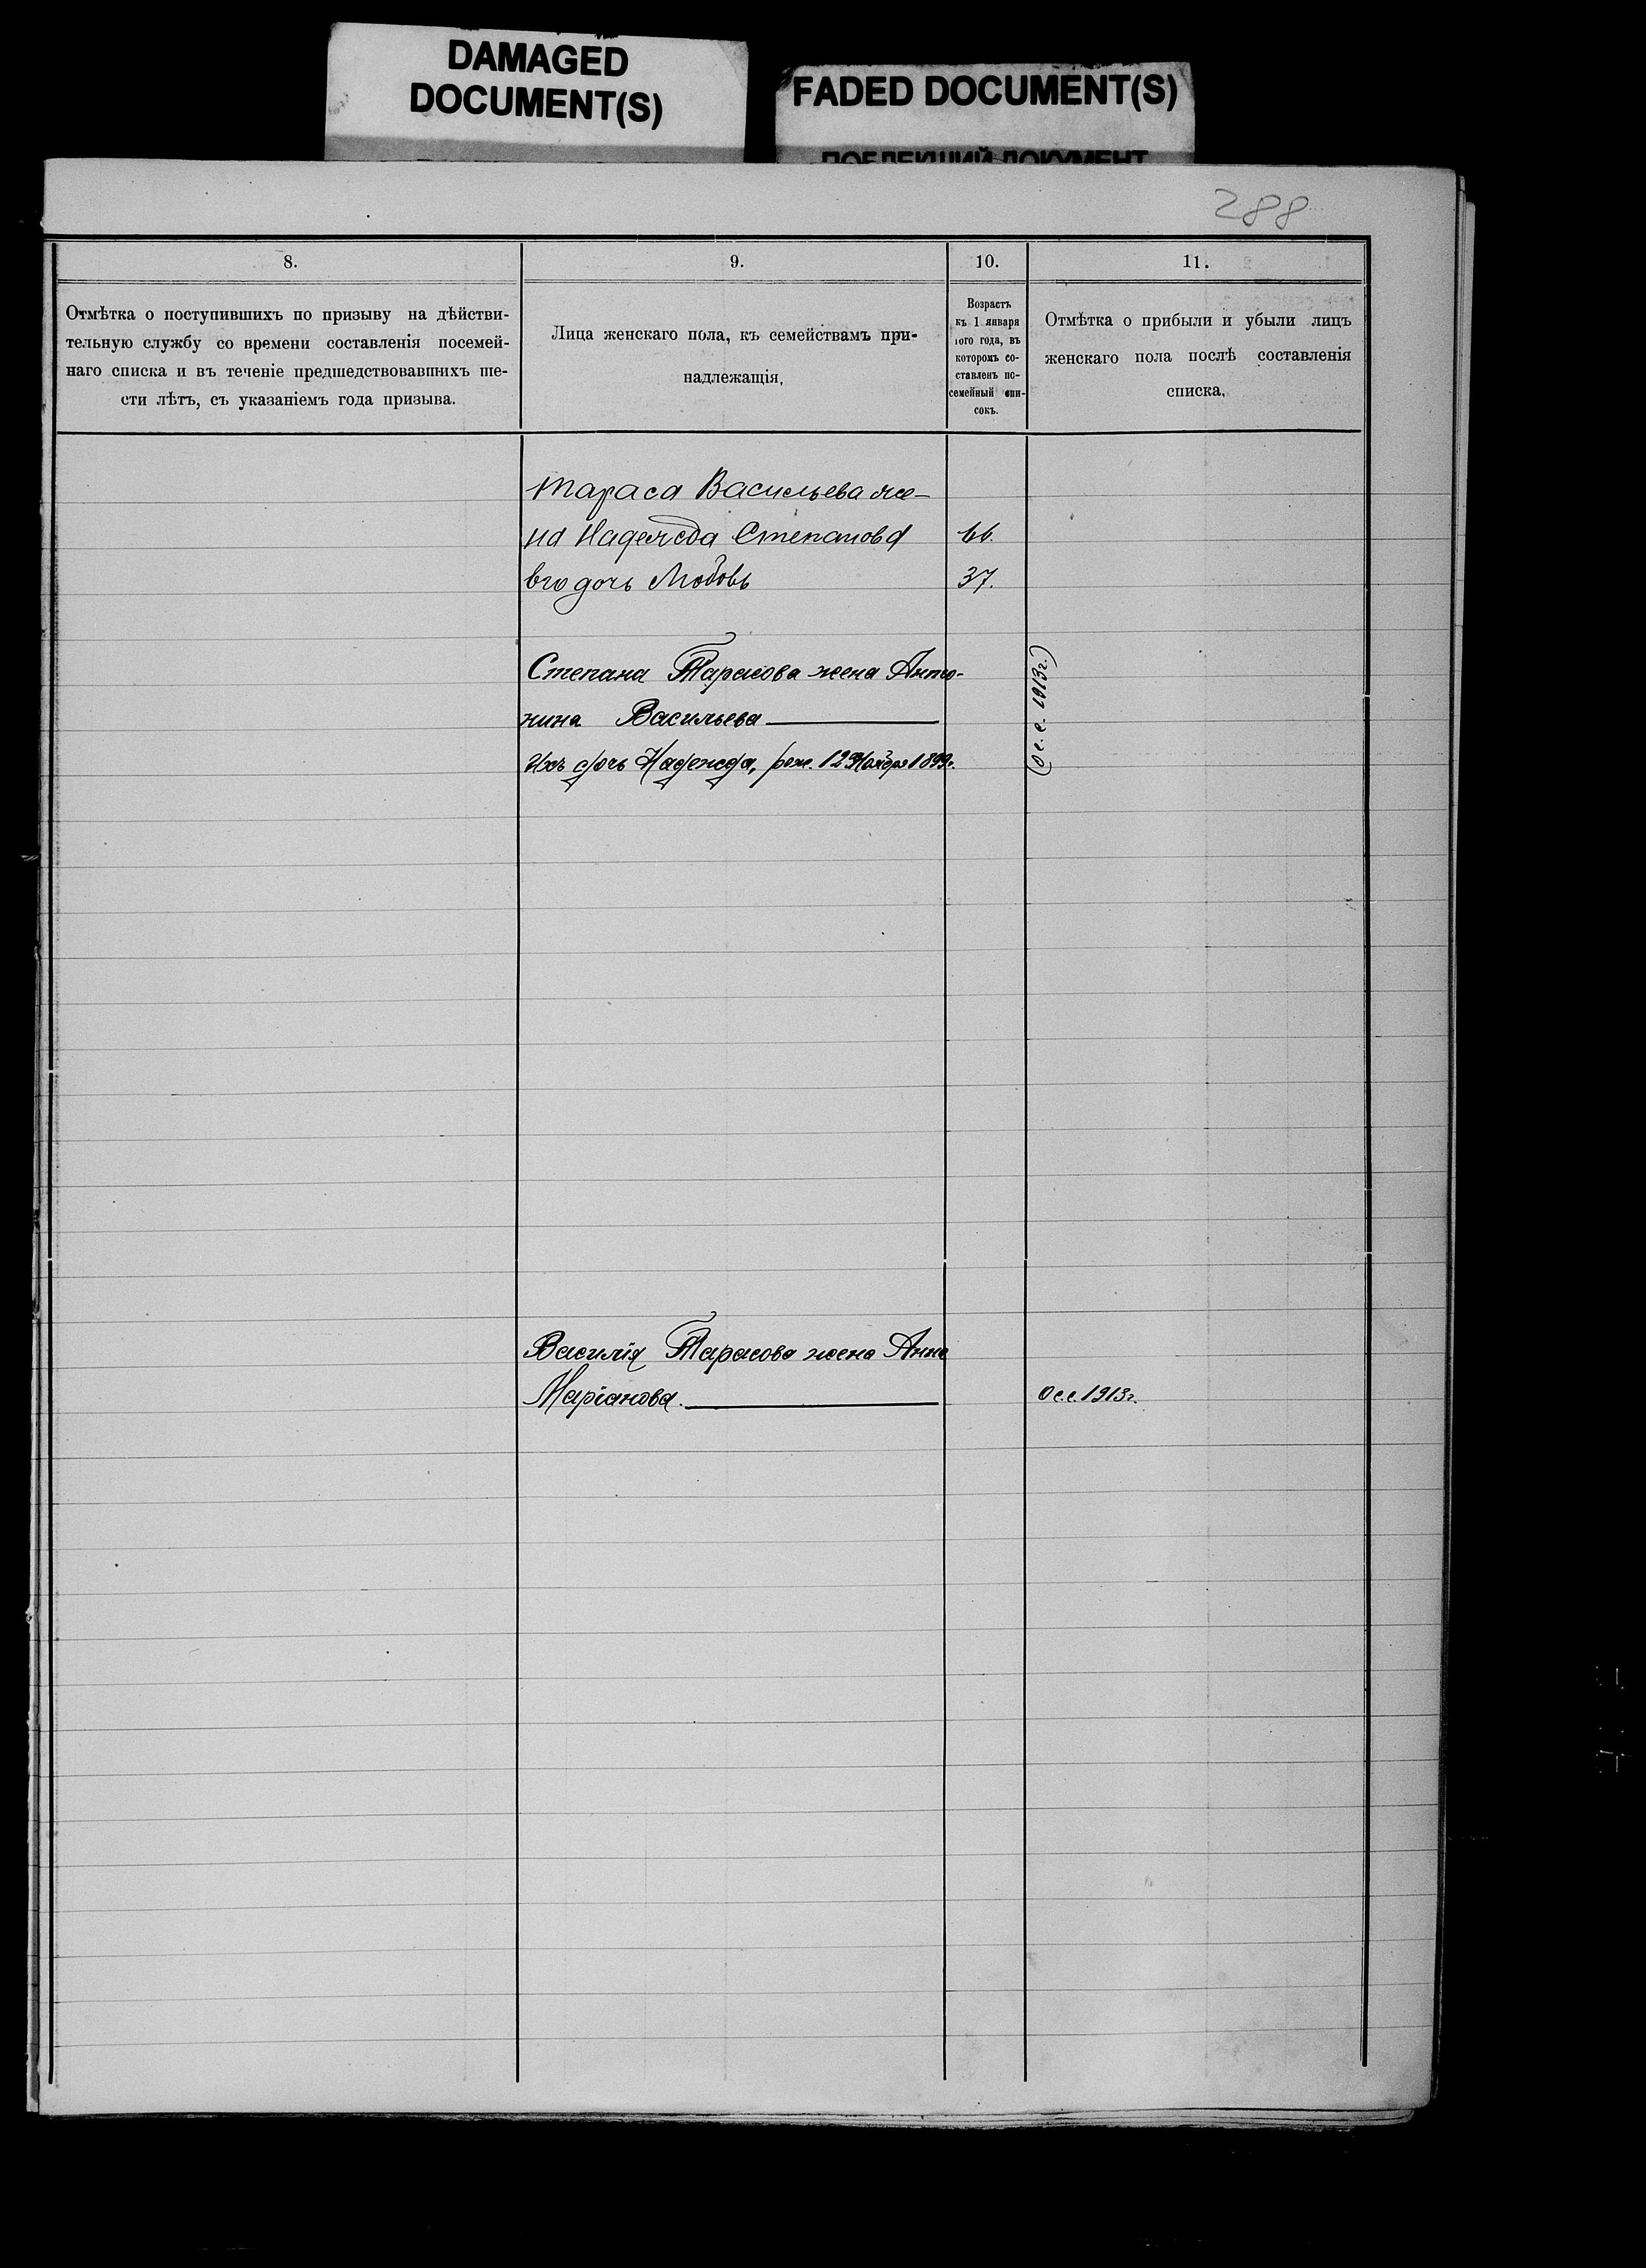 DAMAGED
DOCUMENT(S)
FADED DOCUMENT(S)
ПОБЛЕКШИЙ ДОКУМЕНТ
288
8.
Отмѣтка о поступившихъ по призыву на дѣйстви-
тельную службу со времени составленія посемей-
наго списка и въ теченіе предшедствовавшихъ ше-
сти лѣтъ, съ указаніемъ года призыва.
9.
Лица женскаго пола, къ семействамъ при-
надлежащія,
10.
Возрастъ
къ 1 января
того года, въ
которомъ со-
ставленъ по-
семейный спи-
сокъ.
11.
Отмѣтка о прибыли и убыли лицъ
женскаго пола послѣ составленія
списка,
Тараса Васильева же-
на Надежда Степанова 66.
его дочь Любовь 37.
Степана Тарасова жена Анто-
нина Васильева
Ихъ дочь Надежда, рож. 12 Ноября 1899г.
(О с. с. 1913г.)
Василія Тарасова жена Анна
Маріанова. О с. с. 1913г.